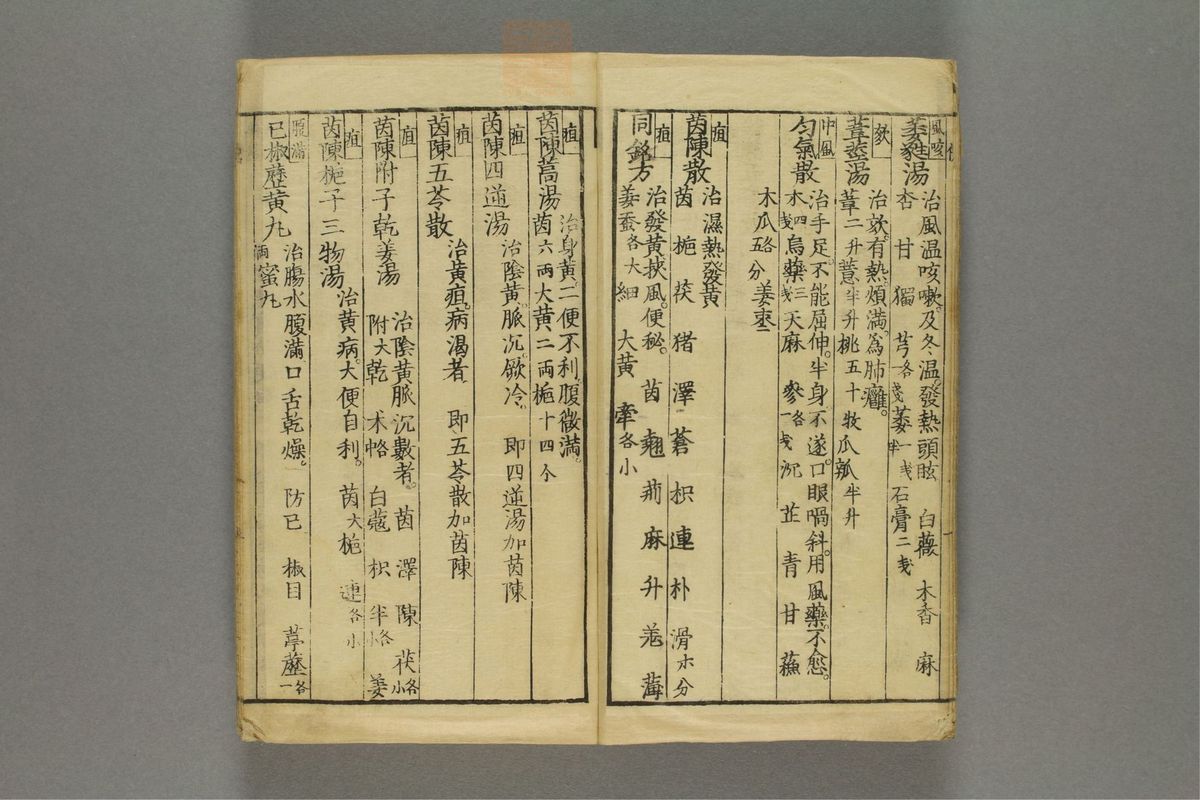 風咳
萎蕤湯
治風温咳嗽。及冬温。發熱頭眩 白薇 木香 麻
杏 甘 獨 芎各戋 萎一戋半 石膏二戋
欬
葦莖湯
治欬。有熱煩滿。為肺癰。
葦二升薏半升桃五十枚瓜瓤半升
中風
匀氣散
治手足。不能屈伸。半身不遂。口眼喎斜。用風藥。不愈。
木四戋烏藥三戋天麻 參各一戋 沉 芷 青 甘 蘓
木瓜各五分姜枣二
疸
茵陳散
治濕熱發黄
茵 梔 茯 猪 澤 蒼 枳 連 朴 滑 木分
疸
同銘方
治發黄。挾風。便秘。 茵 翹 荊 麻 升 羗
姜蚕各大 細 大黄 牽各小
疸
茵陳蒿湯
治身黄。二便不利。腹微滿。
茵六両大黄二両梔十四个
疸
茵陳四逆湯
治陰黄。脈沉。厥冷。 即四逆湯加茵陳
疸
茵陳五苓散
治黄疸。病渴者 即五苓散加茵陳
疸
茵陳附子乾姜湯
治陰黄脈沉數者。 茵 澤 陳 茯各小
附大乾 术各 白蔻 枳 半各 姜
疸
茵陳梔子三物湯
治黄病。大便自利。 茵大梔 連各小
腹滿
已椒藶黄丸
治腸水腹滿口舌乾燥。 防已 椒目 葶藶各一
両蜜丸